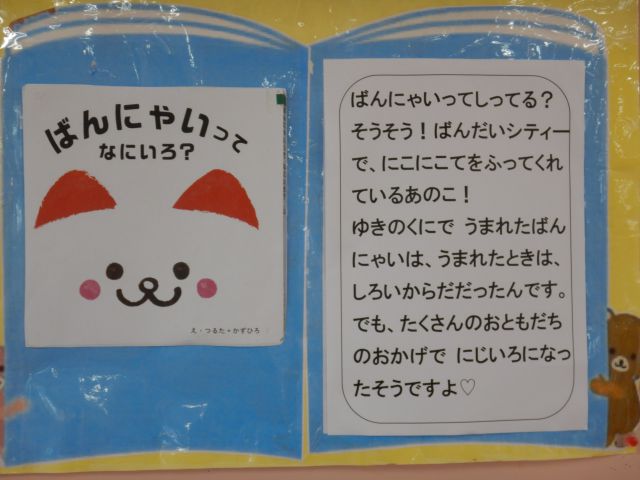 ばんにゃいって
なにいろ?
え・つるた＋かずひろ
ばんにゃいってしってる?
そうそう!ばんだいシティー
で、にこにこてをふってくれ
ているあのこ!
ゆきのくにで うまれたばん
にゃいは、うまれたときは、
しろいからだだったんです。
でも、たくさんのおともだち
のおかげで にじいろになっ
たそうですよ♡